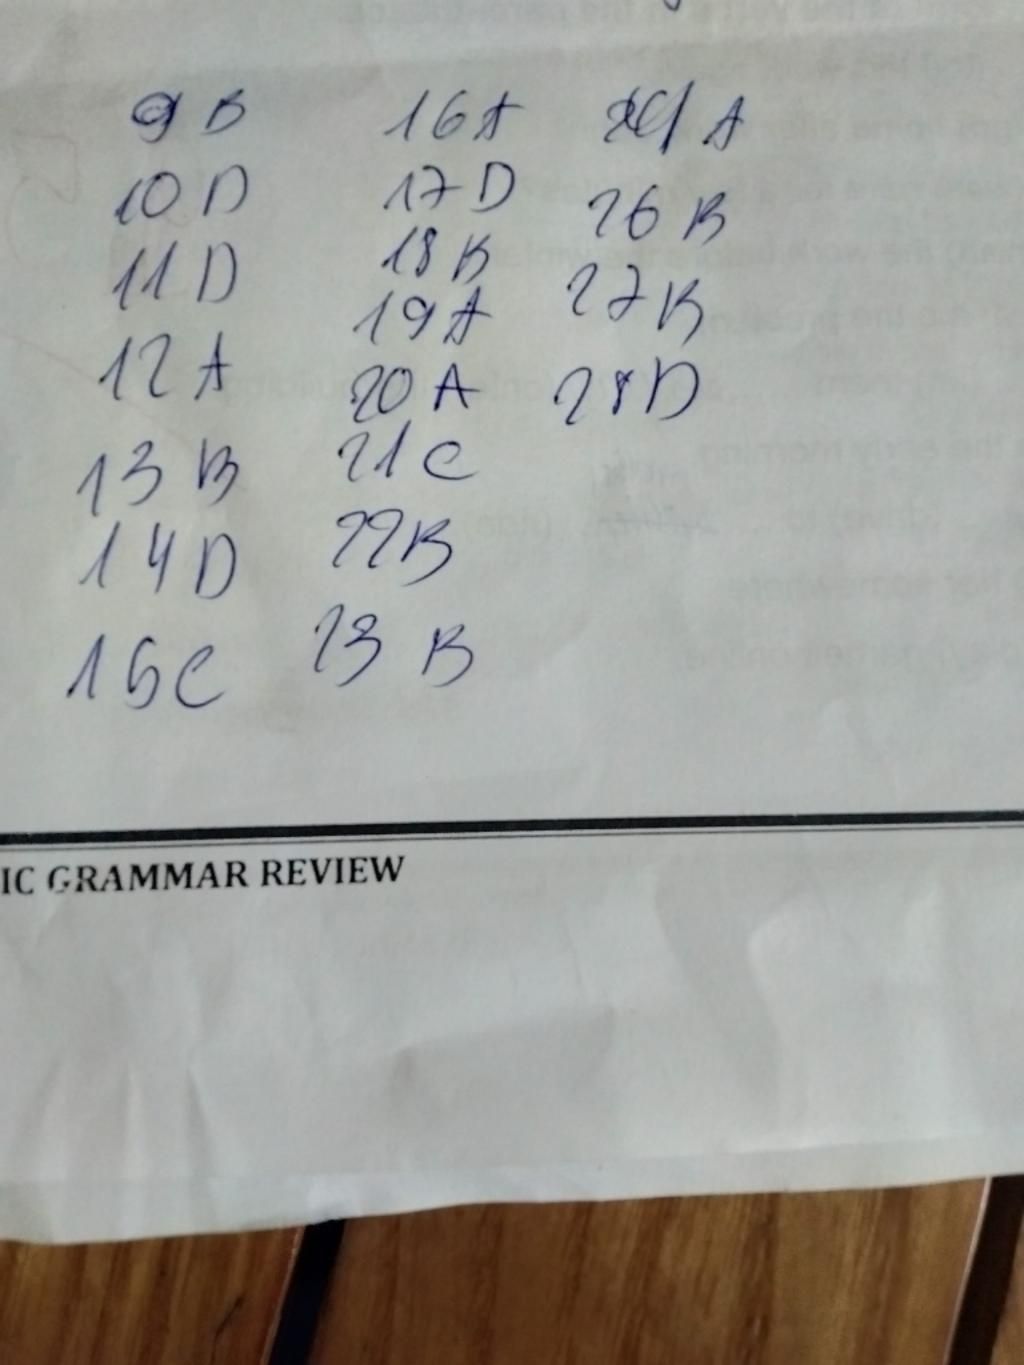 9 B
10 D
11 D
12 A
13 B
14 D
15 C
16 A
17 D
18 B
19 A
20 A
21 C
22 B
23 B
A
26 B
27 B
28 D
IC GRAMMAR REVIEW